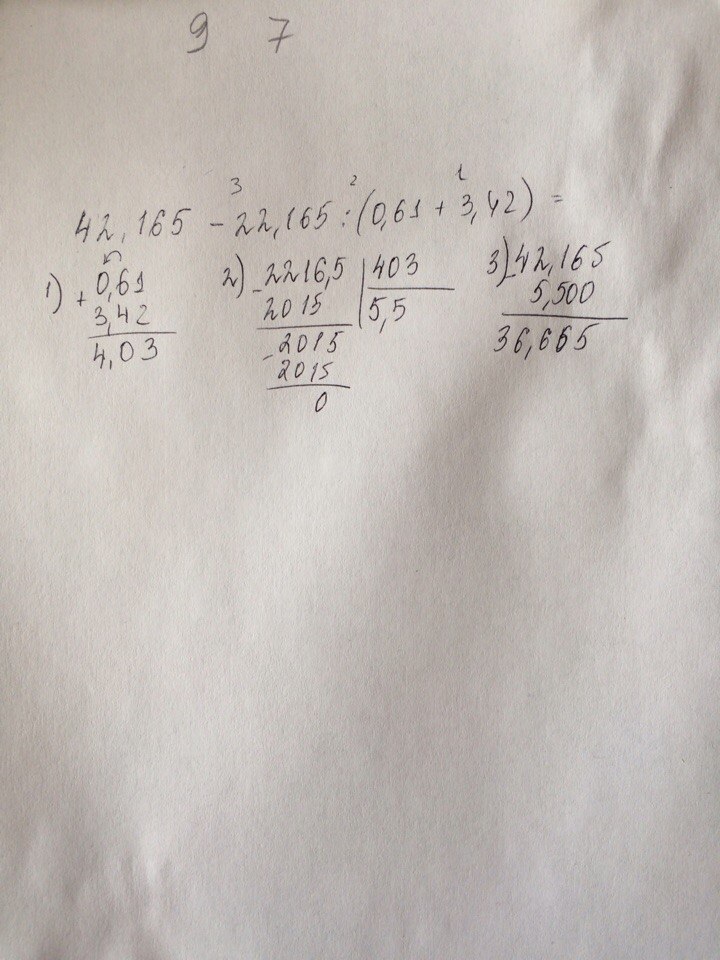 9 7
3 2 1
42,165 - 22,165 : (0,61 + 3,42) =
1) + 0,61
3,42
4,03
2) - 2216,5 | 403
2015 | 5,5
- 2015
2015
0
3) - 42,165
5,500
36,665